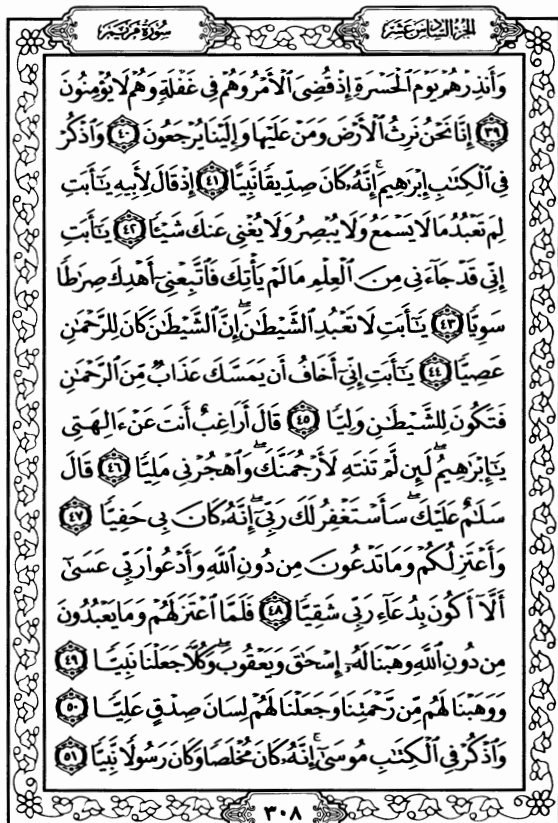 سُورَةُ مَرۡيَمَ
الجُزْءُ السَّادِسَ عَشَرَ
وَأَنذِرۡهُمۡ يَوۡمَ ٱلۡحَسۡرَةِ إِذۡ قُضِيَ ٱلۡأَمۡرُ وَهُمۡ فِي غَفۡلَةٖ وَهُمۡ لَا يُؤۡمِنُونَ
﴿٣٩﴾ إِنَّا نَحۡنُ نَرِثُ ٱلۡأَرۡضَ وَمَنۡ عَلَيۡهَا وَإِلَيۡنَا يُرۡجَعُونَ ﴿٤٠﴾ وَٱذۡكُرۡ
فِي ٱلۡكِتَٰبِ إِبۡرَٰهِيمَۚ إِنَّهُۥ كَانَ صِدِّيقٗا نَّبِيًّا ﴿٤١﴾ إِذۡ قَالَ لِأَبِيهِ يَٰٓأَبَتِ
لِمَ تَعۡبُدُ مَا لَا يَسۡمَعُ وَلَا يُبۡصِرُ وَلَا يُغۡنِي عَنكَ شَيۡـٔٗا ﴿٤٢﴾ يَٰٓأَبَتِ
إِنِّي قَدۡ جَآءَنِي مِنَ ٱلۡعِلۡمِ مَا لَمۡ يَأۡتِكَ فَٱتَّبِعۡنِيٓ أَهۡدِكَ صِرَٰطٗا
سَوِيّٗا ﴿٤٣﴾ يَٰٓأَبَتِ لَا تَعۡبُدِ ٱلشَّيۡطَٰنَۖ إِنَّ ٱلشَّيۡطَٰنَ كَانَ لِلرَّحۡمَٰنِ
عَصِيّٗا ﴿٤٤﴾ يَٰٓأَبَتِ إِنِّيٓ أَخَافُ أَن يَمَسَّكَ عَذَابٞ مِّنَ ٱلرَّحۡمَٰنِ
فَتَكُونَ لِلشَّيۡطَٰنِ وَلِيّٗا ﴿٤٥﴾ قَالَ أَرَاغِبٌ أَنتَ عَنۡ ءَالِهَتِي
يَٰٓإِبۡرَٰهِيمُۖ لَئِن لَّمۡ تَنتَهِ لَأَرۡجُمَنَّكَۖ وَٱهۡجُرۡنِي مَلِيّٗا ﴿٤٦﴾ قَالَ
سَلَٰمٌ عَلَيۡكَۖ سَأَسۡتَغۡفِرُ لَكَ رَبِّيٓۖ إِنَّهُۥ كَانَ بِي حَفِيّٗا ﴿٤٧﴾
وَأَعۡتَزِلُكُمۡ وَمَا تَدۡعُونَ مِن دُونِ ٱللَّهِ وَأَدۡعُواْ رَبِّي عَسَىٰٓ
أَلَّآ أَكُونَ بِدُعَآءِ رَبِّي شَقِيّٗا ﴿٤٨﴾ فَلَمَّا ٱعۡتَزَلَهُمۡ وَمَا يَعۡبُدُونَ
مِن دُونِ ٱللَّهِ وَهَبۡنَا لَهُۥٓ إِسۡحَٰقَ وَيَعۡقُوبَۖ وَكُلّٗا جَعَلۡنَا نَبِيّٗا ﴿٤٩﴾
وَوَهَبۡنَا لَهُم مِّن رَّحۡمَتِنَا وَجَعَلۡنَا لَهُمۡ لِسَانَ صِدۡقٍ عَلِيّٗا ﴿٥٠﴾
وَٱذۡكُرۡ فِي ٱلۡكِتَٰبِ مُوسَىٰٓۚ إِنَّهُۥ كَانَ مُخۡلَصٗا وَكَانَ رَسُولٗا نَّبِيّٗا ﴿٥١﴾
٣٠٨